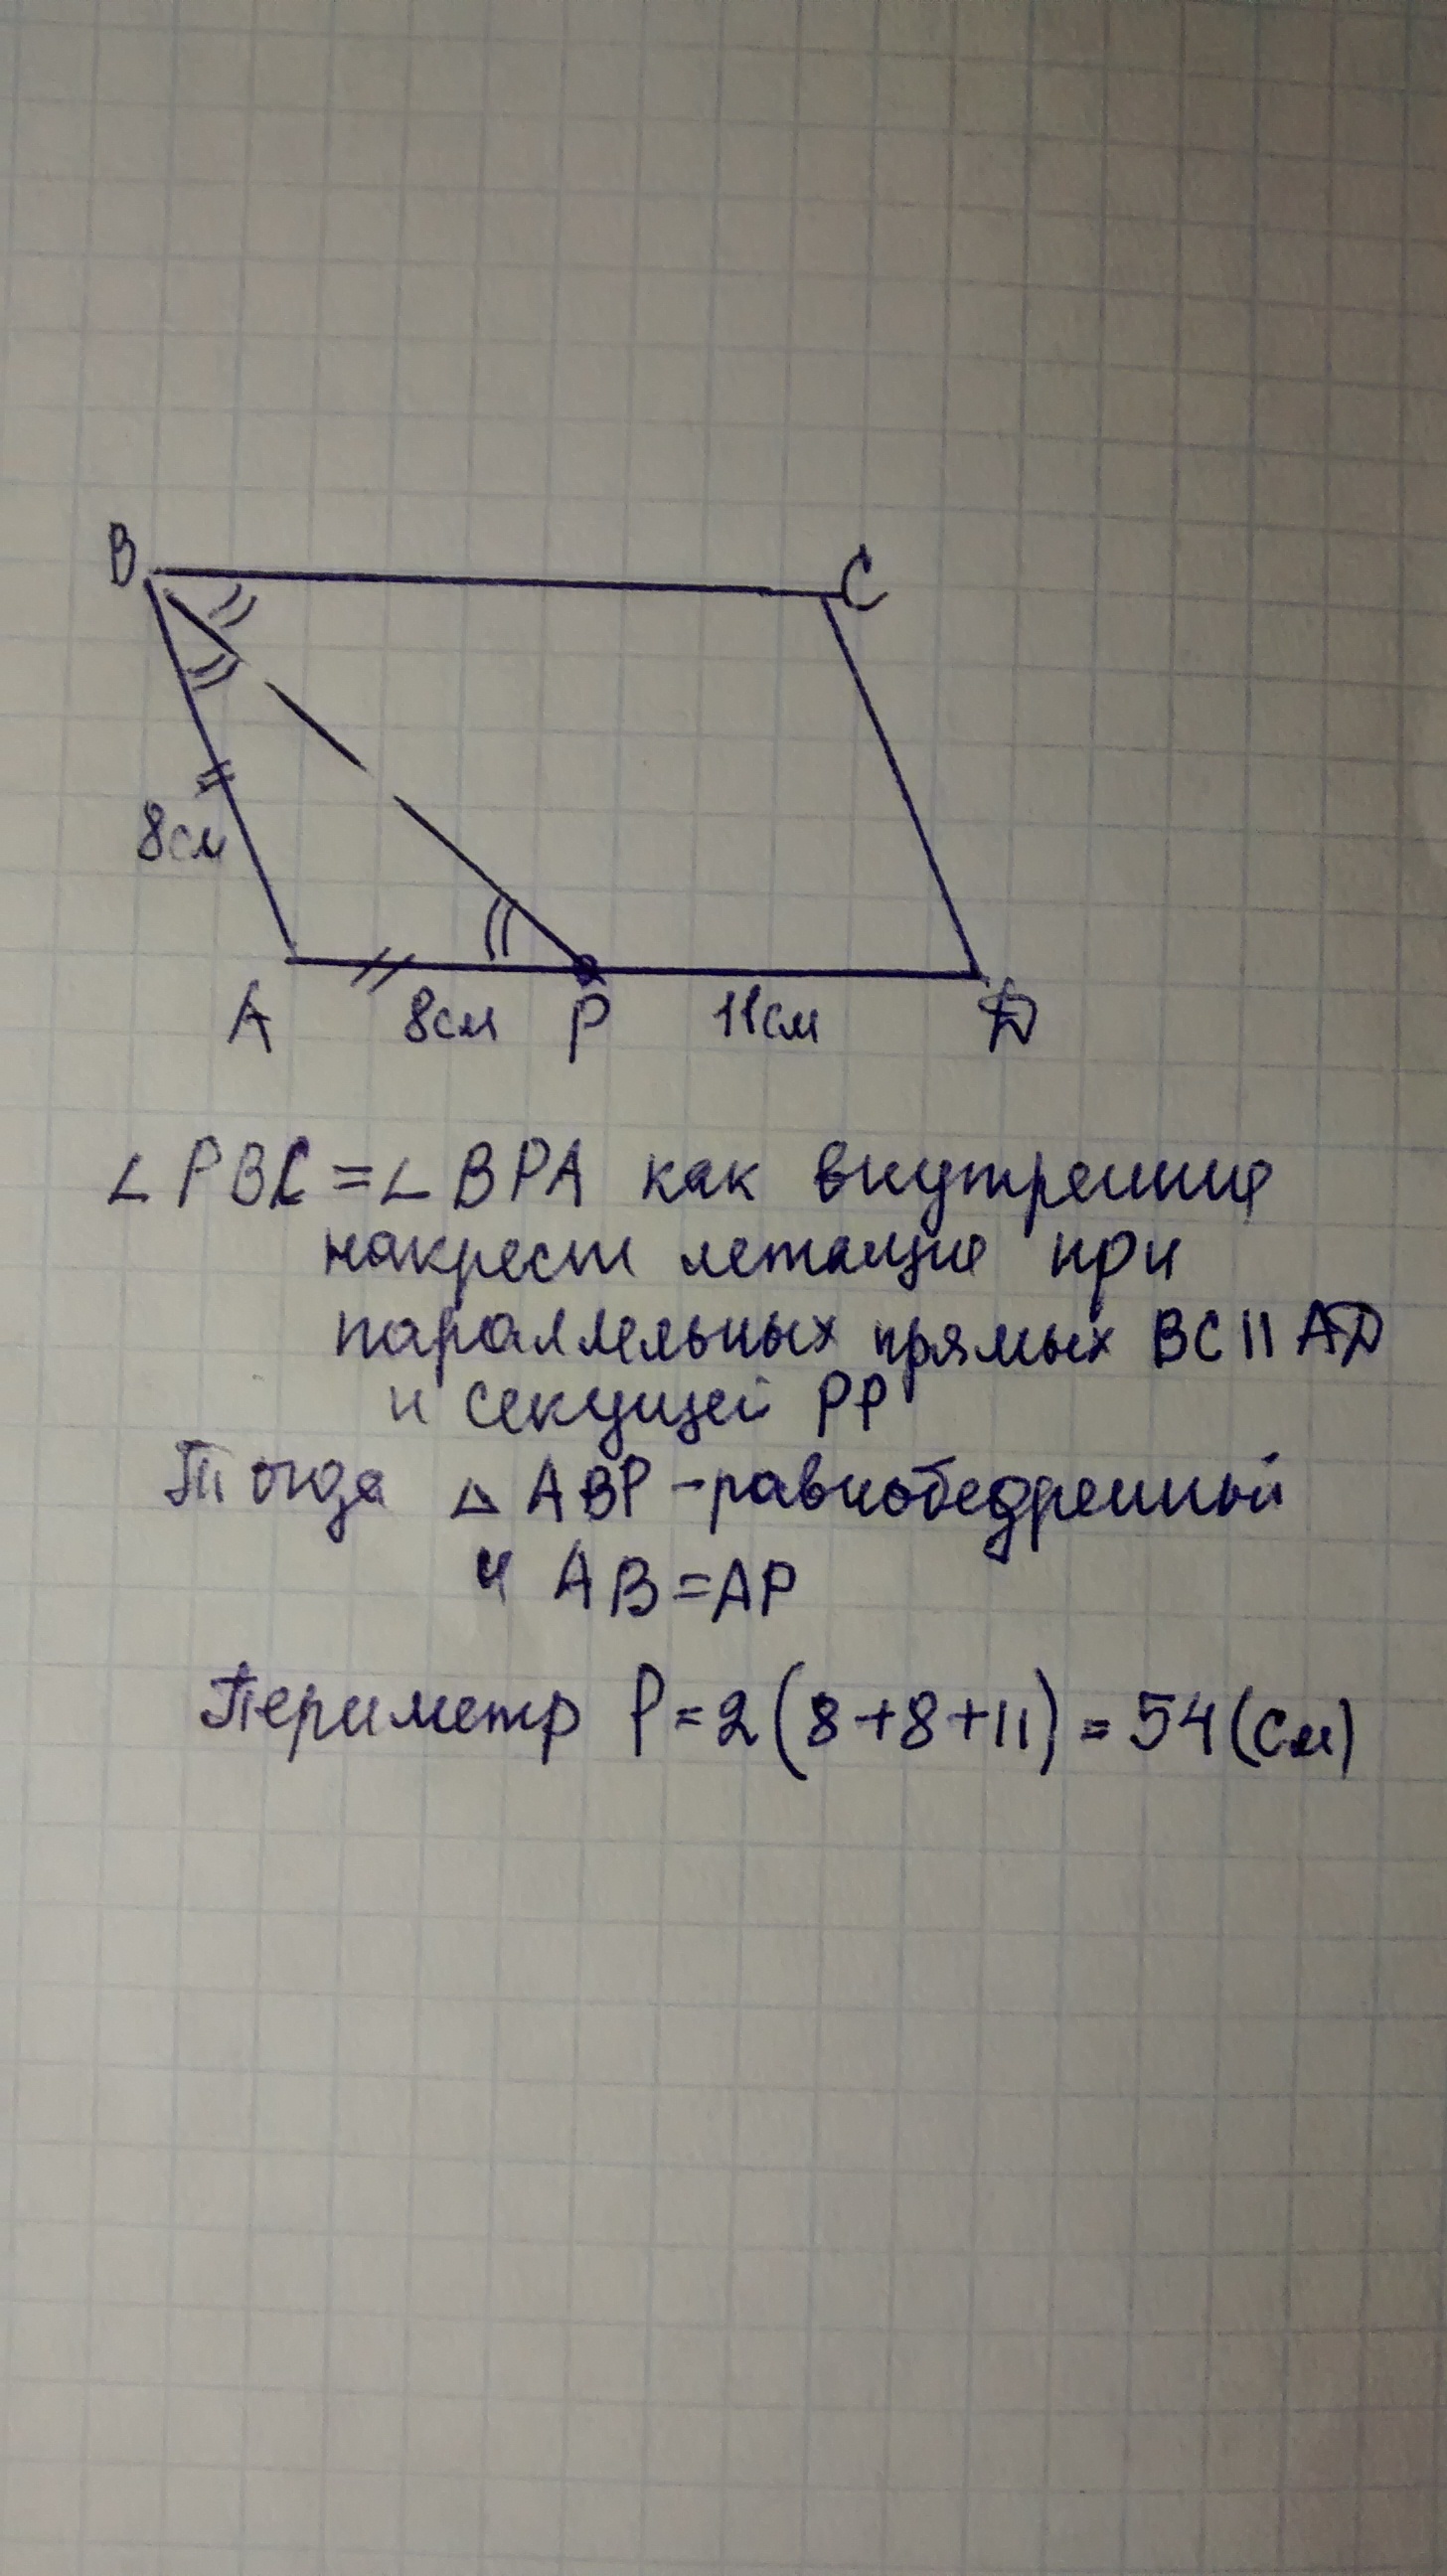 B
C
8см
A
8см
P
11см
D
∠PBC=∠BPA как внутренние
накрест лежащие при
параллельных прямых BC||AD
и секущей PP
Тогда △ABP-равнобедренный
и AB=AP
Периметр P=2(8+8+11)=54(см)